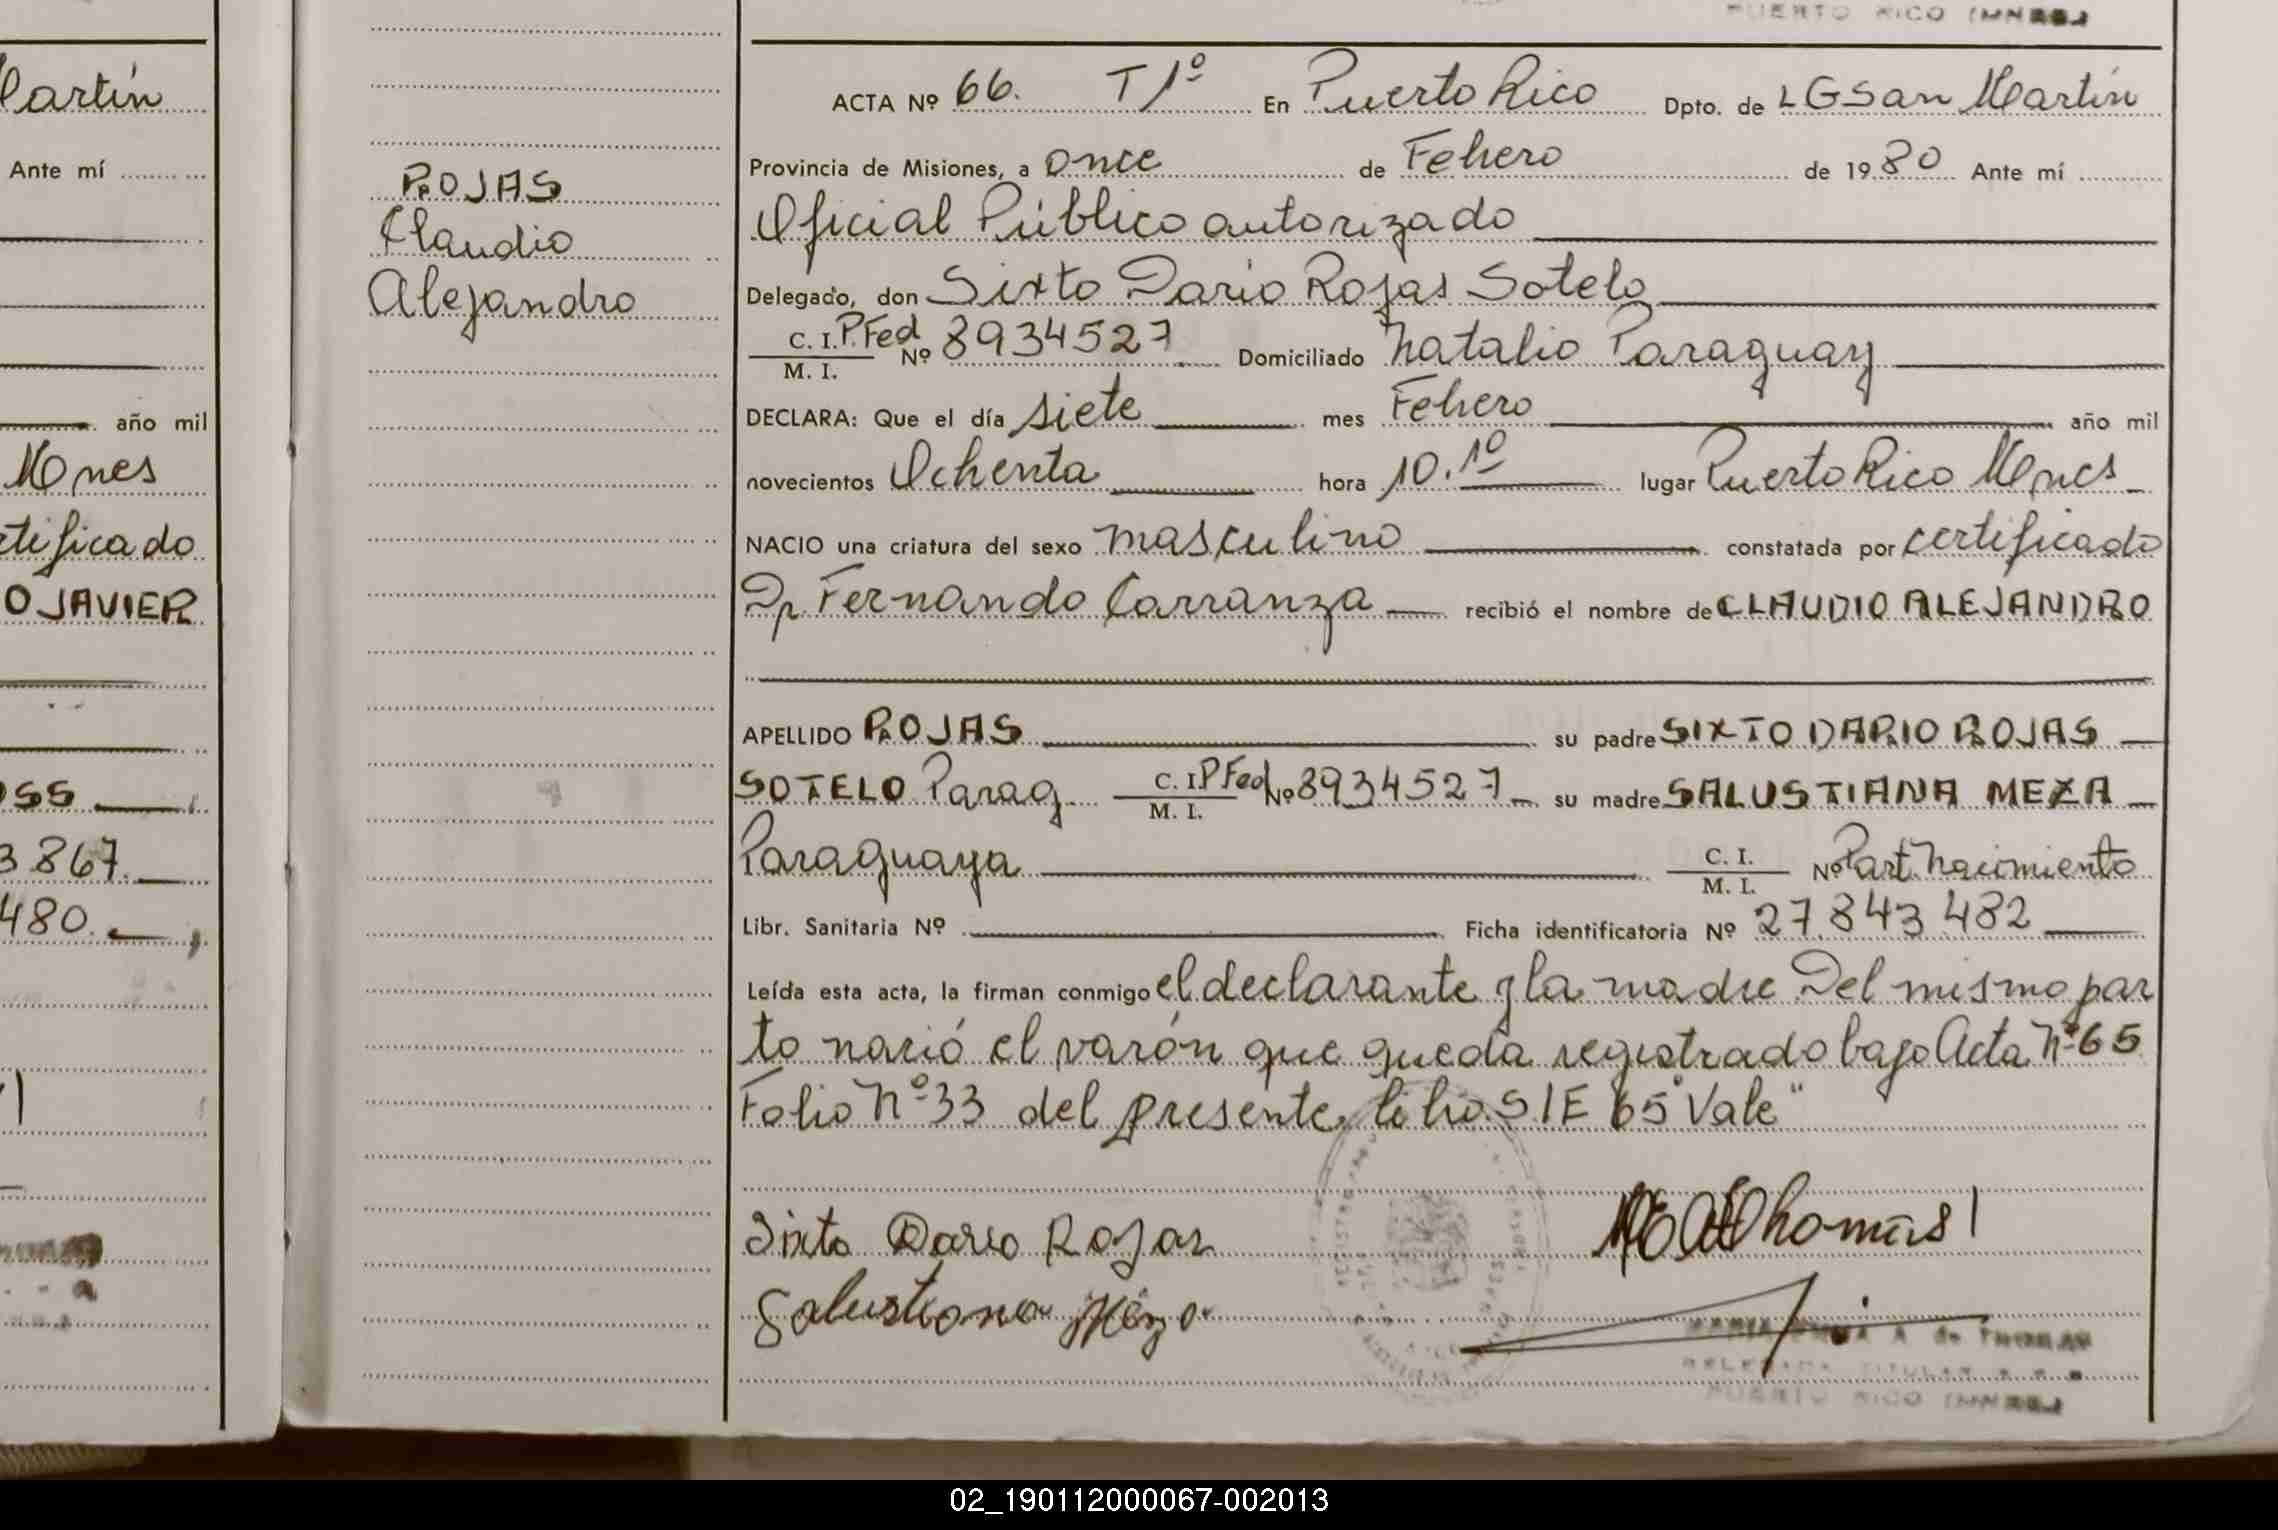 PUERTO RICO (MNES)
artín
Ante mí
año mil
Mnes
rtificado
O JAVIER
OSS
3867.
480.
ROJAS
Claudio
Alejandro
ACTA Nº 66. T 1º En Puerto Rico Dpto. de LGSan Martín
Provincia de Misiones, a once de Febrero de 1980 Ante mí
Oficial Público autorizado
Delegado, don Sixto Dario Rojas Sotelo
C. I. P. Fed M. I. Nº 8934527 Domiciliado Natalio Paraguay
DECLARA: Que el día siete mes Febrero año mil
novecientos Ochenta hora 10.10 lugar Puerto Rico Mnes
NACIO una criatura del sexo masculino constatada por certificado
Dr Fernando Carranza recibió el nombre de CLAUDIO ALEJANDRO
APELLIDO ROJAS su padre SIXTO DARIO ROJAS
SOTELO Parag. C. I. P Fed M. I. Nº 8934527 su madre SALUSTIANA MEZA
Paraguaya C. I. M. I. Nº Part. Nacimiento
Libr. Sanitaria Nº Ficha identificatoria Nº 27.843.482
Leída esta acta, la firman conmigo el declarante y la madre. Del mismo par
to nació el varón que queda registrado bajo Acta Nº 65
Folio Nº 33 del presente libro. S/E 65 Vale"
Sixto Dario Rojas
Salustiana Meza
MARIA A de THOMAS
DELEGADA TITULAR
PUERTO RICO (MNES)
02_190112000067-002013